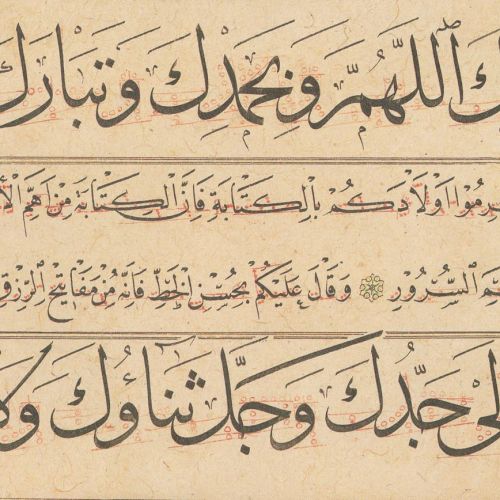 ك اللَّهُمَّ وَبِحَمْدِكَ وَتَبَارَكَ
اَوْلَادَكُمْ بِالْكِتَابَةِ فَاِنَّ الْكِتَابَةَ مِنْ اَهَمِّ
السُّرُورِ وَقَالَ عَلَيْكُمْ بِحُسْنِ الْخَطِّ فَاِنَّهُ مِنْ مَفَاتِيحِ الرِّزْقِ
لَى جَدُّكَ وَجَلَّ ثَنَاؤُكَ وَلَا